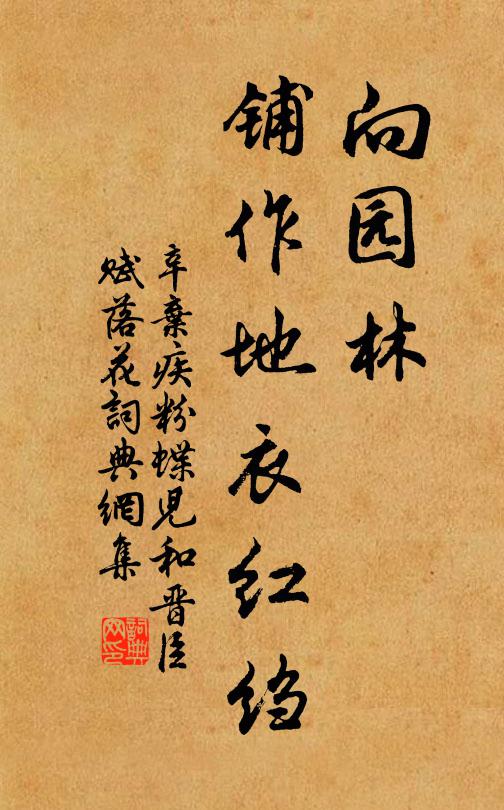 向园林
铺作地衣红绉
辛棄疾粉蝶児和晋臣
赋落花詞典網集